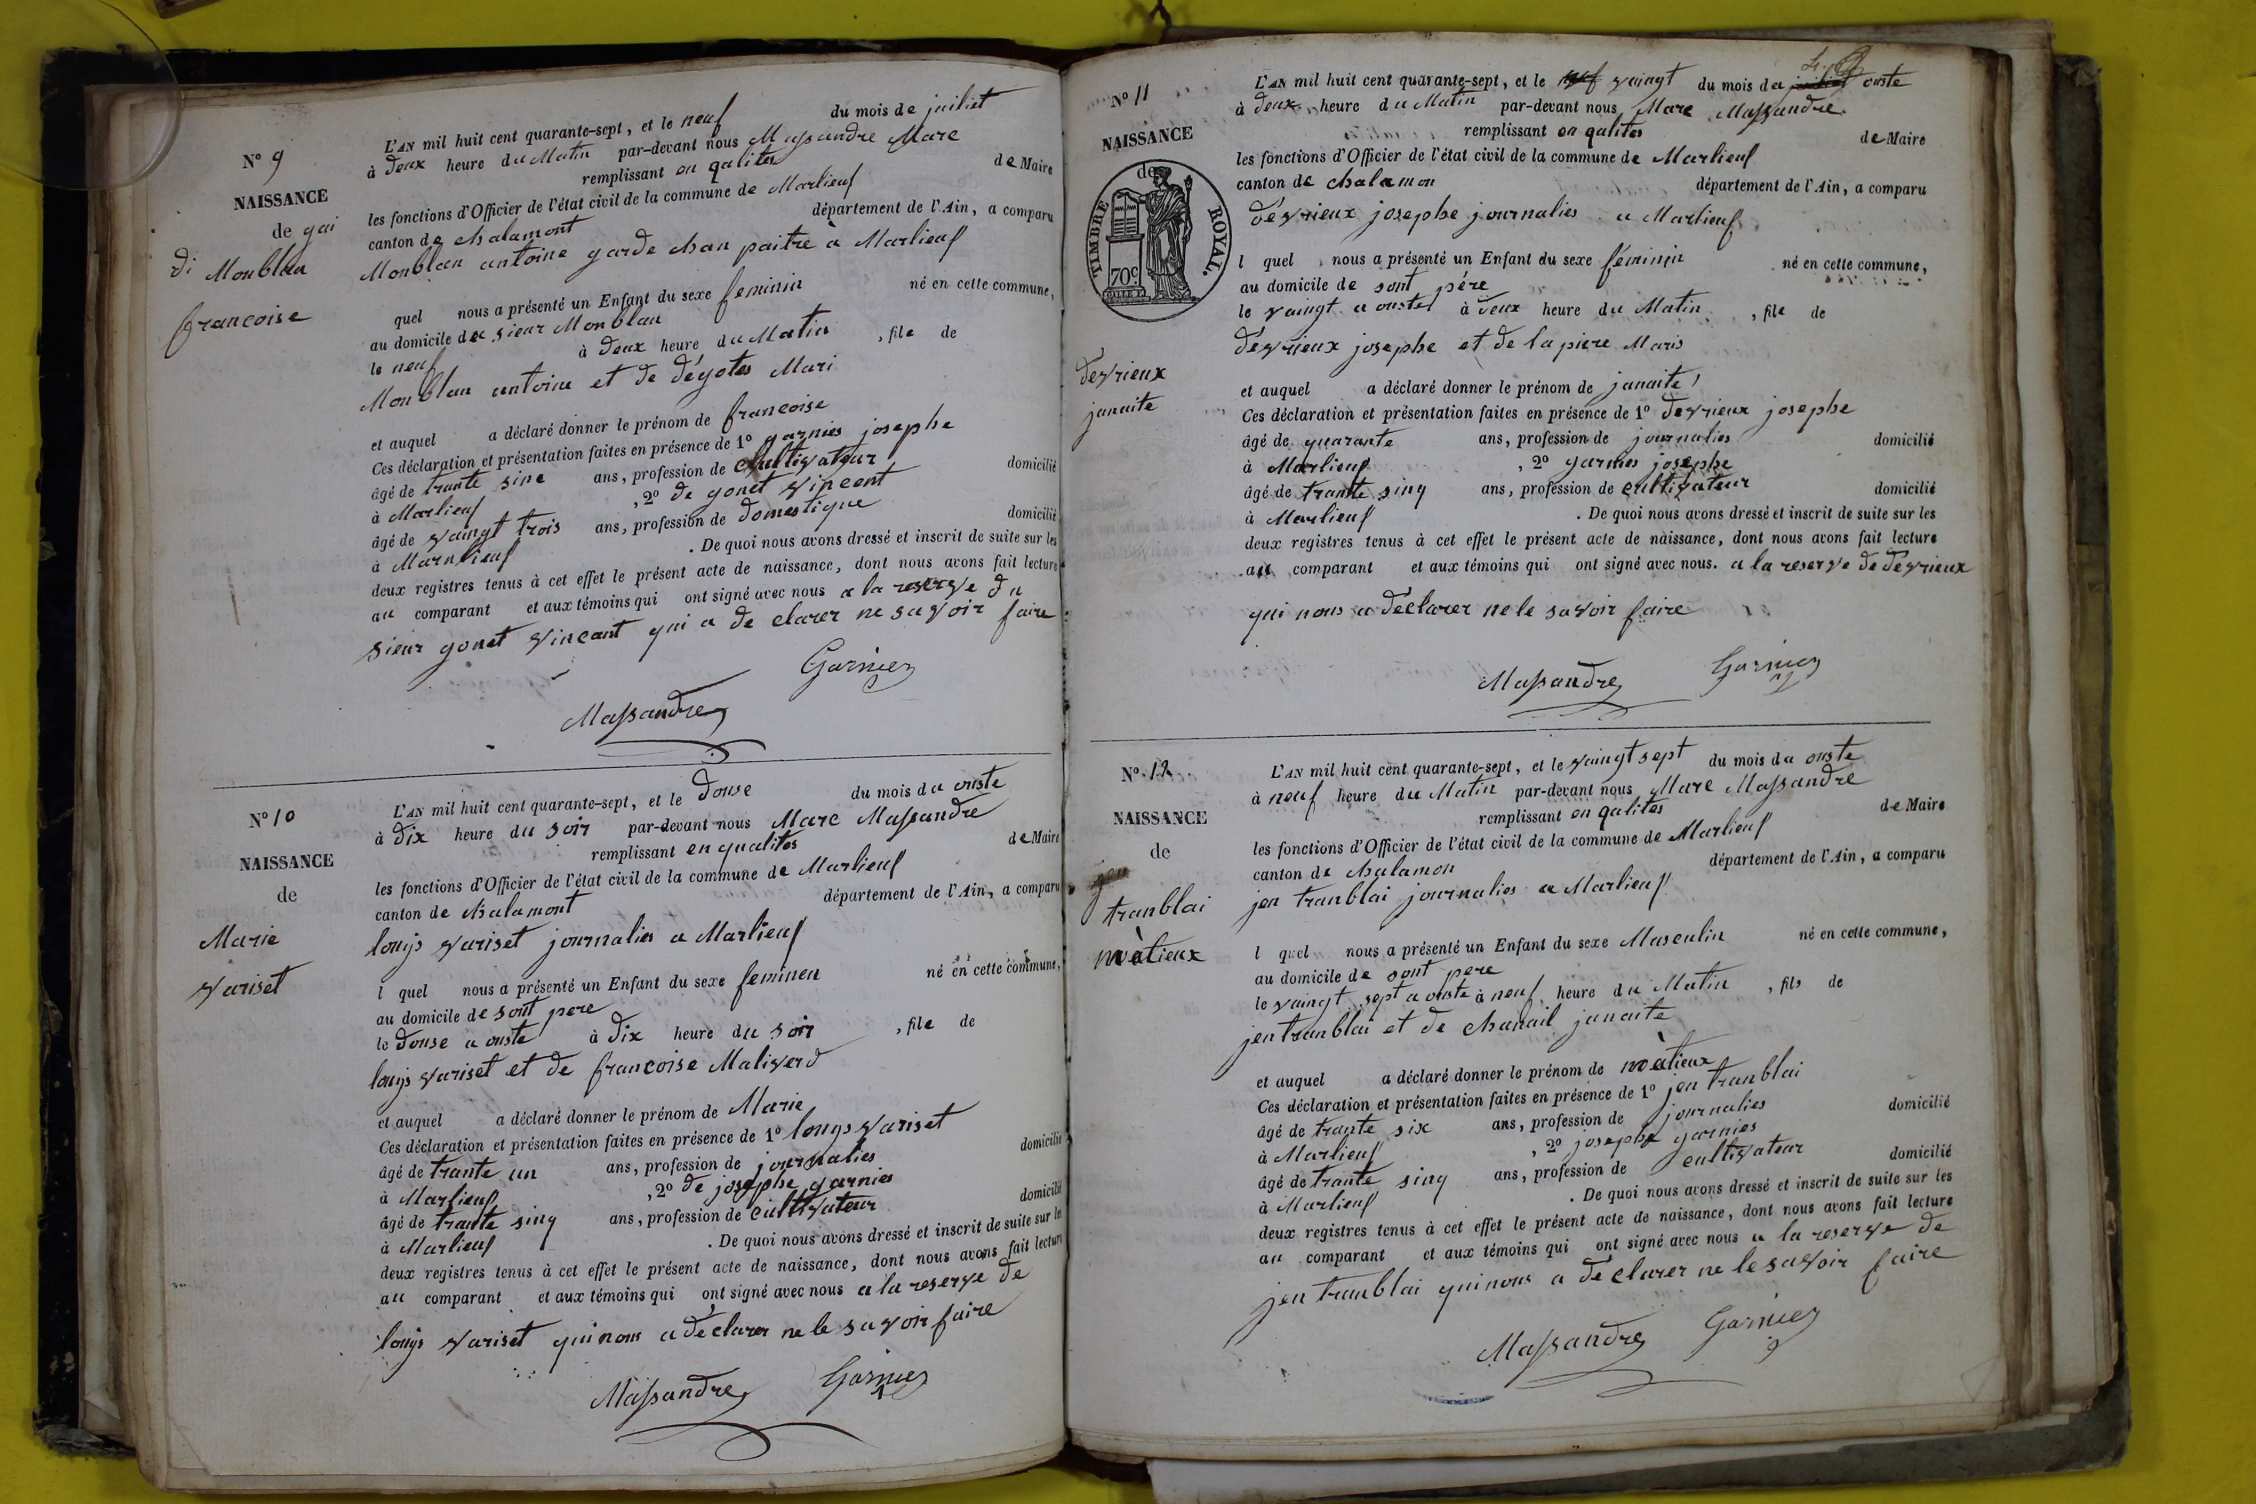 N° 9
NAISSANCE
de gai
di Monblan
francoise
L'AN mil huit cent quarante-sept, et le neuf du mois de juiliet
à deux heure du Matin par-devant nous Massandre Marc
remplissant en qalites de Maire
les fonctions d'Officier de l'état civil de la commune de Marlieuf
canton de chalamont département de l'Ain, a comparu
Monblan antoine garde chan paitre à Marlieuf
quel nous a présenté un Enfant du sexe feminin né en cette commune,
au domicile du sieur Monblan
le neuf à deux heure du Matin, file de
Monblan antoine et de déyotes Mari
et auquel a déclaré donner le prénom de francoise
Ces déclaration et présentation faites en présence de 1° garnies josephe
âgé de trante sinc ans, profession de chultivateur domicilié
à Marlieuf, 2° de gonet vincent
âgé de vaingt trois ans, profession de domestique domicilié
à Marnlieuf. De quoi nous avons dressé et inscrit de suite sur les
deux registres tenus à cet effet le présent acte de naissance, dont nous avons fait lecture
au comparant et aux témoins qui ont signé avec nous a la reserve du
sieur gonet vincant qui a de clarer ne savoir faire
Garnier
Massandre
N° 10
NAISSANCE
de
Marie
variset
L'AN mil huit cent quarante-sept, et le douse du mois da ouste
à dix heure du soir par-devant nous Marc Massandre
remplissant en qualites de Maire
les fonctions d'Officier de l'état civil de la commune de Marlieuf
canton de chalamont département de l'Ain, a comparu
louijs variset journalies a Marlieuf
l quel nous a présenté un Enfant du sexe feminen né en cette commune,
au domicile de sont pere
le douse a ouste à dix heure du soir, file de
louijs variset et de francoise Maliverd
et auquel a déclaré donner le prénom de Marie
Ces déclaration et présentation faites en présence de 1° louys variset
âgé de trante un ans, profession de journalies domicilié
à Marlieuf, 2° de josephe garnies
âgé de trante sinq ans, profession de cultivateur domicilié
à Marlieuf. De quoi nous avons dressé et inscrit de suite sur les
deux registres tenus à cet effet le présent acte de naissance, dont nous avons fait lecture
au comparant et aux témoins qui ont signé avec nous a la reserve de
louijs variset qui nous a déclarer ne le savoir faire
Massandre Garnier
N° 11
NAISSANCE
de
TIMBRE ROYAL.
70c
devrieux
janaite
L'AN mil huit cent quarante-sept, et le neuf vaingt du mois da juiliet ouste
à deux heure du Matin par-devant nous Marc Massandre
remplissant en qalites de Maire
les fonctions d'Officier de l'état civil de la commune de Marlieuf
canton de chalamon département de l'Ain, a comparu
dévrieux josephe journalies a Marlieuf
l quel nous a présenté un Enfant du sexe féminin né en cette commune,
au domicile de sont pére
le vaingt a ouste à deux heure du Matin, file de
dévrieux josephe et de la piere Maris
et auquel a déclaré donner le prénom de janaite
Ces déclaration et présentation faites en présence de 1° devrieux josephe
âgé de quarante ans, profession de journalies domicilié
à Marlieuf, 2° garnies josephe
âgé de trante sinq ans, profession de cultivateur domicilié
à Marlieuf. De quoi nous avons dressé et inscrit de suite sur les
deux registres tenus à cet effet le présent acte de naissance, dont nous avons fait lecture
au comparant et aux témoins qui ont signé avec nous. a la reserve de devrieux
qui nous a déclarer ne le savoir faire
Massandre Garnier
N° 12
NAISSANCE
de
jen
tranblai
màtieux
L'AN mil huit cent quarante-sept, et le vaingt sept du mois da ouste
à neuf heure du Matin par-devant nous Marc Massandre
remplissant en qalites de Maire
les fonctions d'Officier de l'état civil de la commune de Marlieuf
canton de chalamon département de l'Ain, a comparu
jen tranblai journalies a Marlieuf
l quel nous a présenté un Enfant du sexe Masculin né en cette commune,
au domicile de sont pere
le vaingt sept a ouste à neuf heure du Matin, fils de
jen tranblai et de chanail janaite
et auquel a déclaré donner le prénom de màtieux
Ces déclaration et présentation faites en présence de 1° jen tranblai
âgé de trante six ans, profession de journalies domicilié
à Marlieuf, 2° josephe garnies
âgé de trante sinq ans, profession de cultivateur domicilié
à Marlieuf. De quoi nous avons dressé et inscrit de suite sur les
deux registres tenus à cet effet le présent acte de naissance, dont nous avons fait lecture
au comparant et aux témoins qui ont signé avec nous a la reserve de
jen tranblai qui nous a de clarer ne le savoir faire
Massandre Garnier